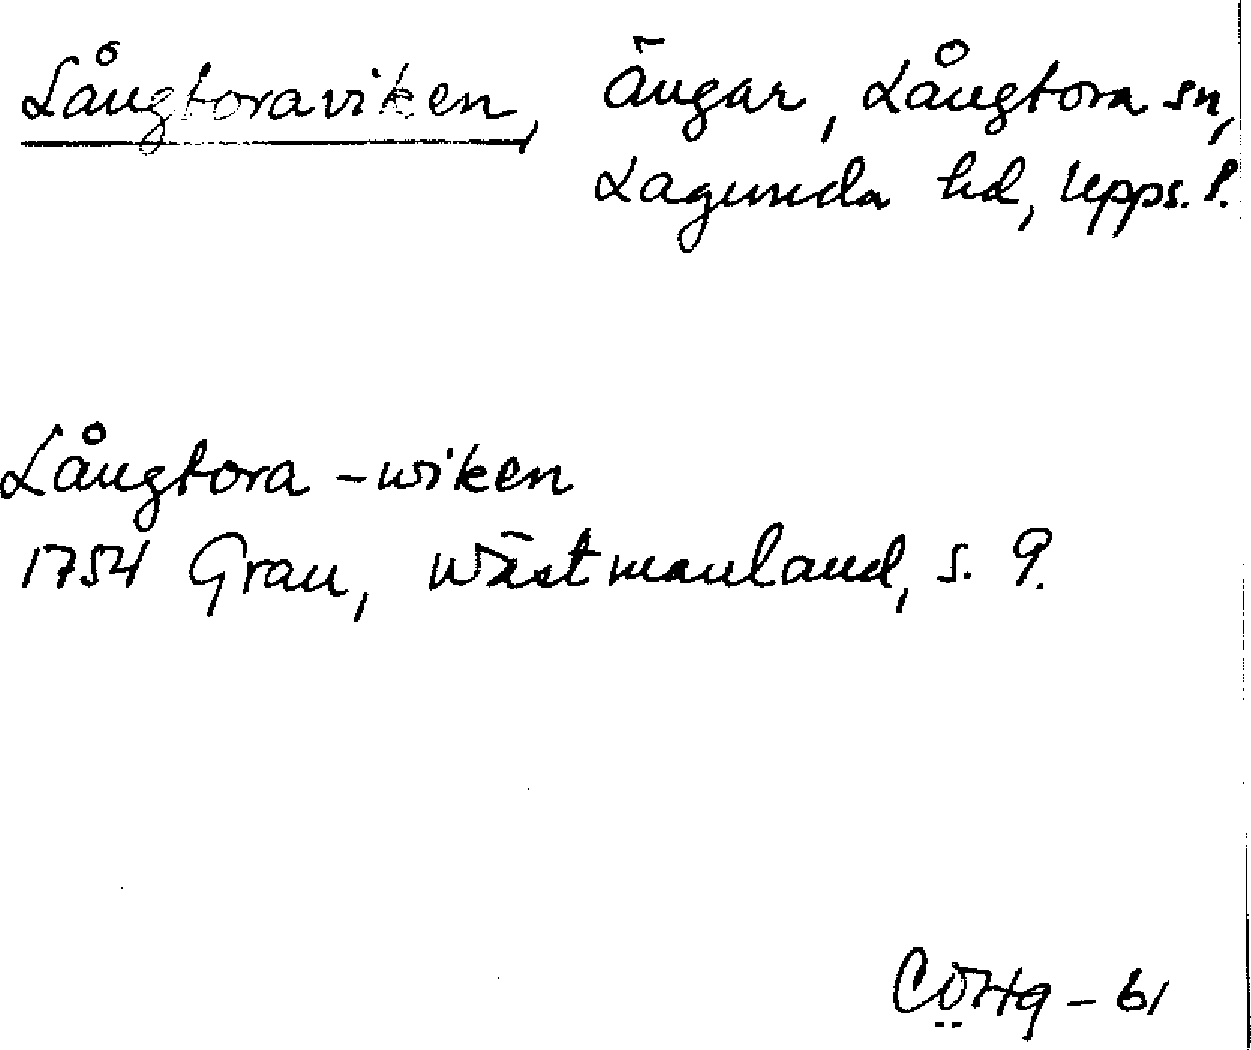 Långtoraviken, Ängar, Långtora sn,
Lagunda hd, Upps. l.
Långtora -wiken
1754 Grau, Wästmanland, s. 9.
CÖHg - 61